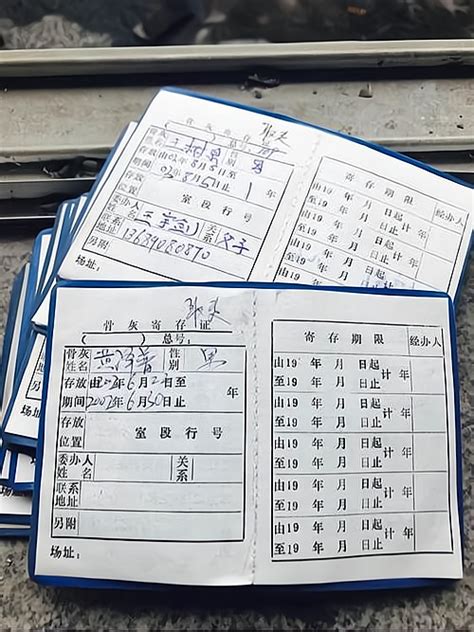 骨灰寄存证
( ) 总号:
骨灰姓名 性别 男
存放期间 由02年8月8日至 1年
02年8月15日止
存放位置 室段行号
委办人姓名 关系 父子
联系地址 13684080870
另附
场址:
寄存期限 经办人
由19 年 月 日起 计 年
至19 年 月 日止
由19 年 月 日起 计 年
至19 年 月 日止
由19 年 月 日起 计 年
至19 年 月 日止
由19 年 月
至19 年
骨灰寄存证
( ) 总号:
骨灰姓名 性别 男
存放期间 由2002年6月2日至 年
2002年6月30日止
存放位置 室段行号
委办人姓名 关系
联系地址
另附
场址:
寄存期限 经办人
由19 年 月 日起 计 年
至19 年 月 日止
由19 年 月 日起 计 年
至19 年 月 日止
由19 年 月 日起 计 年
至19 年 月 日止
由19 年 月 日起 计 年
至19 年 月 日止